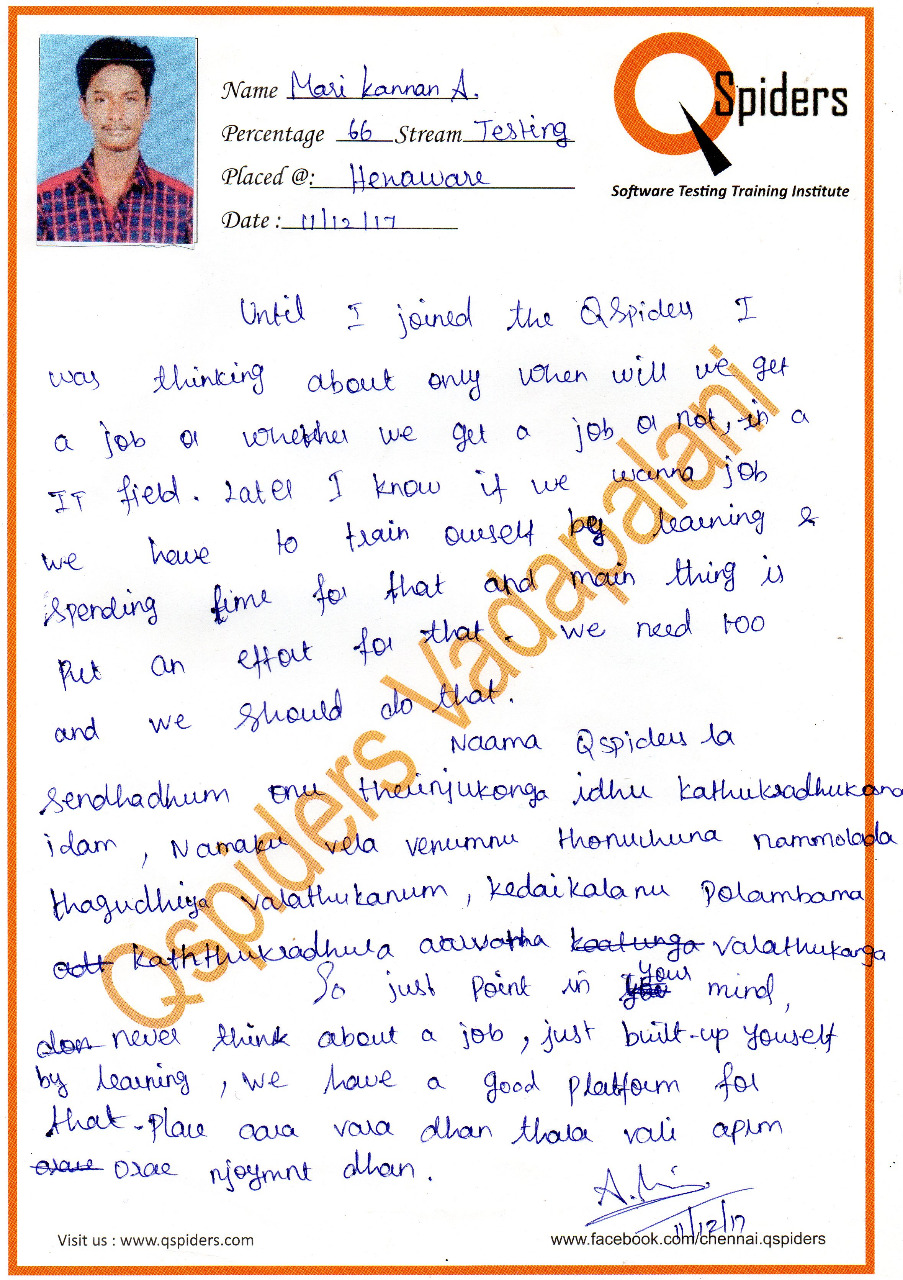 Name Mari Kannan A.
Percentage 66 Stream Testing
Placed @: Henaware
Date : 11/12/17
QSpiders
Software Testing Training Institute
Until I joined the QSpiders I
was thinking about only when will we get
a job or whether we get a job or not, in a
IT field. Later I know if we wanna job
we have to train ourself by learning &
spending time for that and main thing is
Put an effort for that. We need too
and we should do that.
Naama Qspiders la
Sendhadhum onu therinjukonga idhu kathukradhukana
idam, Namaku vela venumnu thonuchuna nammolada
thagudhiya valathukanum, kedaikalanu Polambama
kaththukradhula aarvatha valathukonga
So just Point in your mind,
never think about a job, just built-up yourself
by learning, we have a good platform for
that-Place aara vara dhan thala vali aprm
orae njoymnt dhan.
11/12/17
Qspiders Vadapalani
Visit us : www.qspiders.com
www.facebook.com/chennai.qspiders